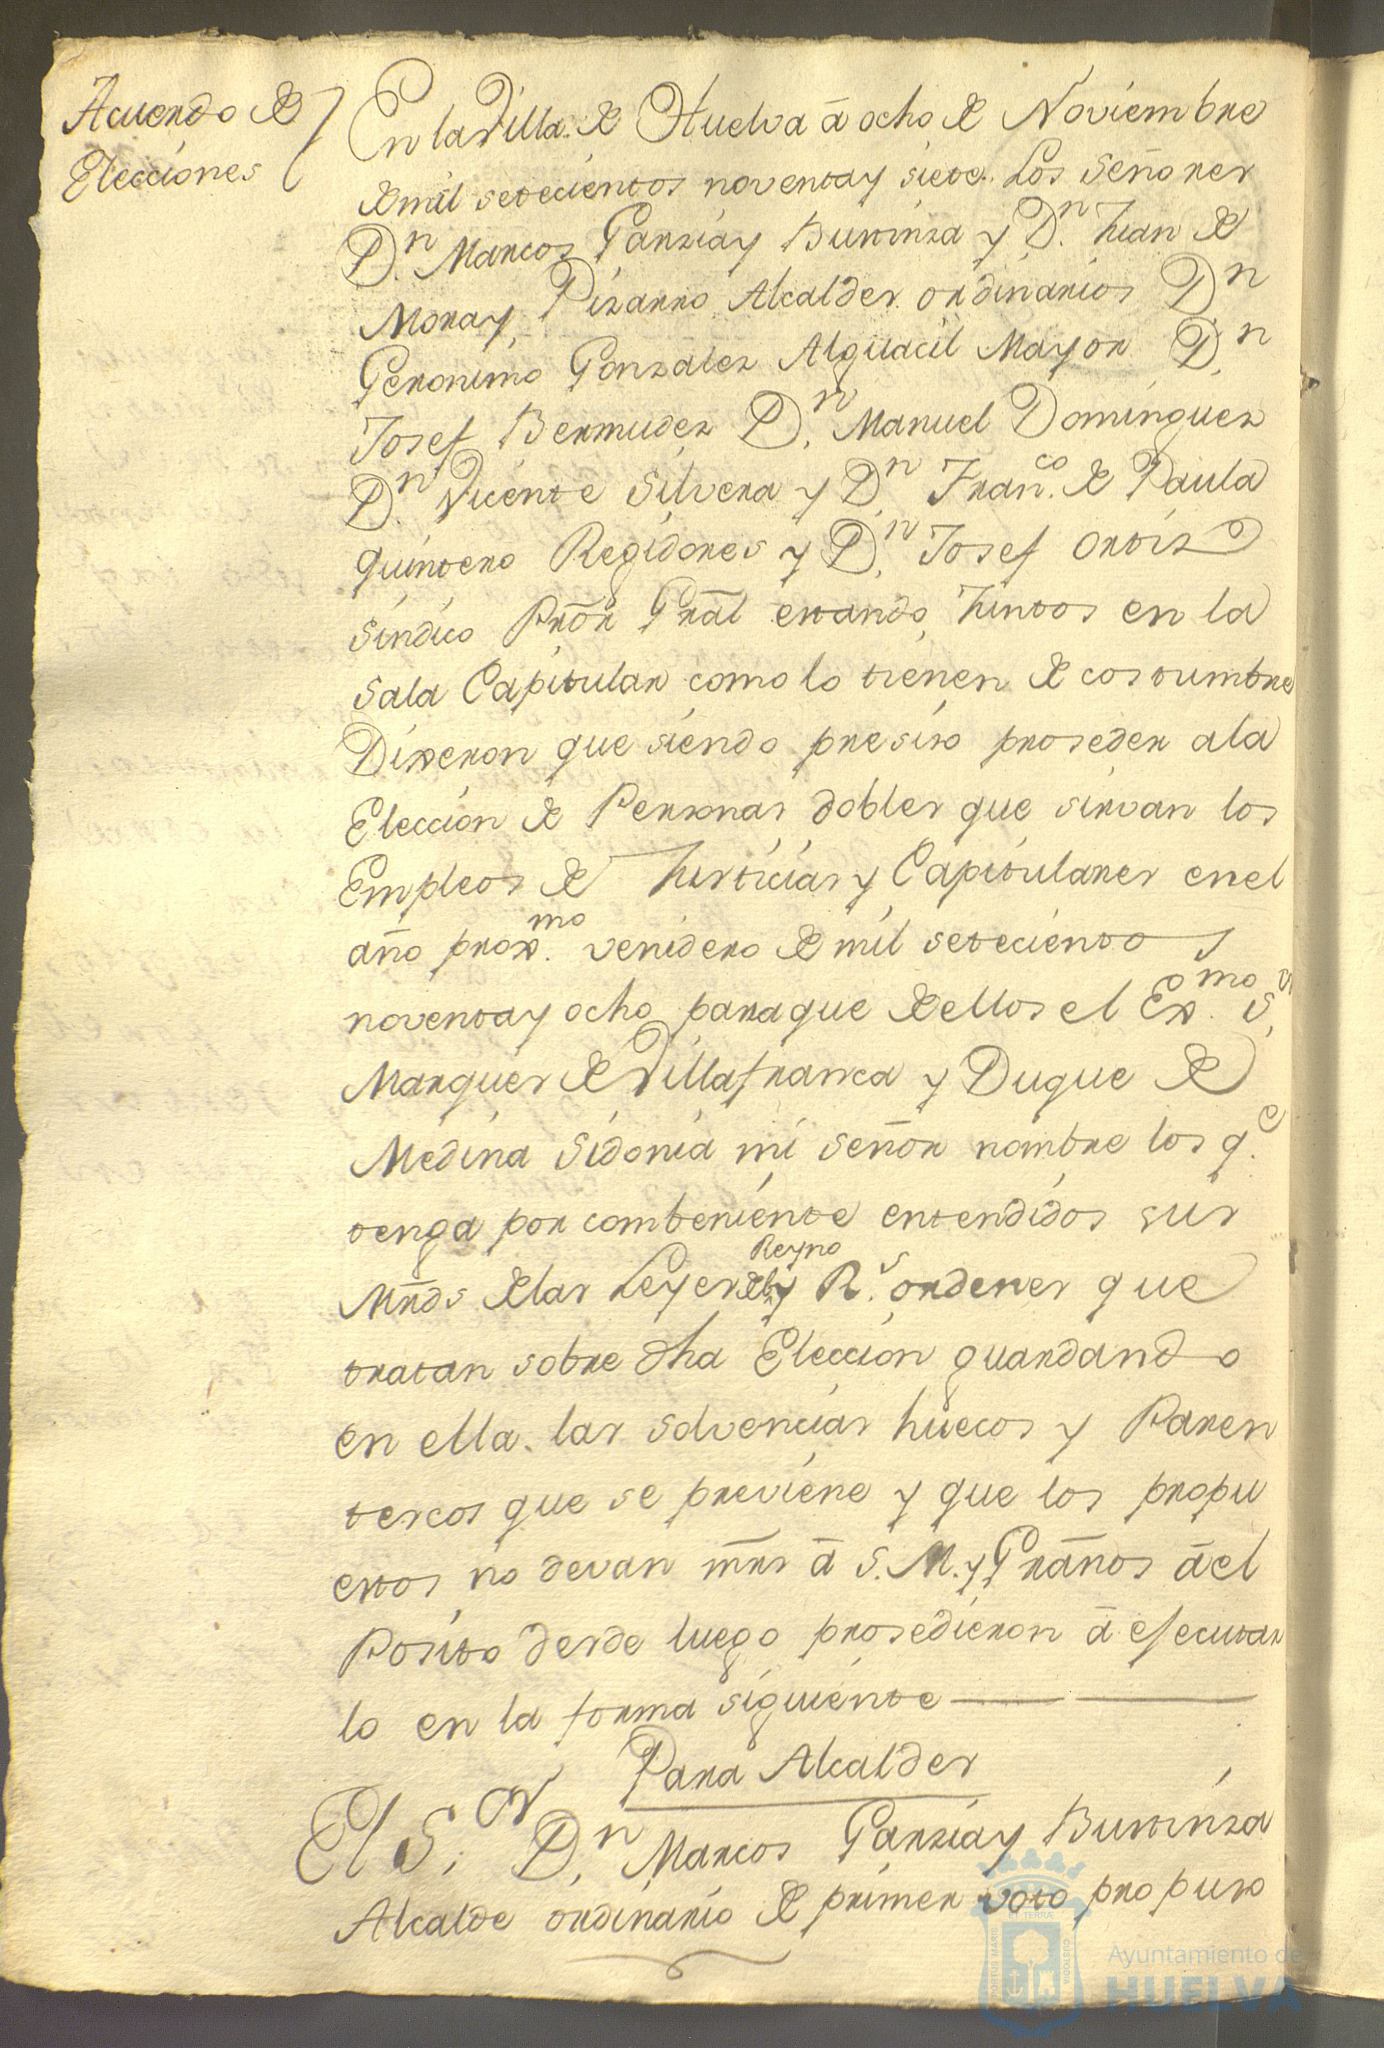 Acuerdo de
Elecciones
En la Villa de Huelva á ocho de Noviembre
de mil setecientos noventa y siete. Los Señores
Dn. Marcos Garzia y Bustinza y Dn. Juan de
Mora y Pizarro Alcaldes ordinarios Dn
Geronimo Gonzalez Alguacil Mayor Dn.
Josef Bermudez Dn. Manuel Dominguez
Dn. Vicente Silvera y Dn. Franco. de Paula
quintero Regidores y Dn. Josef Ortiz
Sindico Prõr Grãl estando Juntos en la
Sala Capitular como lo tienen de costumbre
Dixeron que siendo presiso proseder a la
Eleccion de Personas dobles que sirvan los
Empleos de Justicias y Capitulares en el
año proxmo. venidero de mil setecientos
noventa y ocho para que de ellos el Exmo. Sr.
Marques de Villafranca y Duque de
Medina Sidonia mi señor nombre los qe.
tenga por combeniente entendidos sus
Mrds de las Leyes del Reyno y Rs. ordenes que
tratan sobre dha Eleccion guardando
en ella las solvencias huecos y Paren
tescos que se previene y que los propu
estos no devan mrs á S. M. y Granos áel
Posito desde luego prosedieron á esecutar
lo en la forma siguiente
Para Alcaldes
El Sor. Dn. Marcos Garzia y Bustinza
Alcalde ordinario de primer voto propuso
PORTUS MARIS
ET TERRA
CUSTODIA
Ayuntamiento de
HUELVA